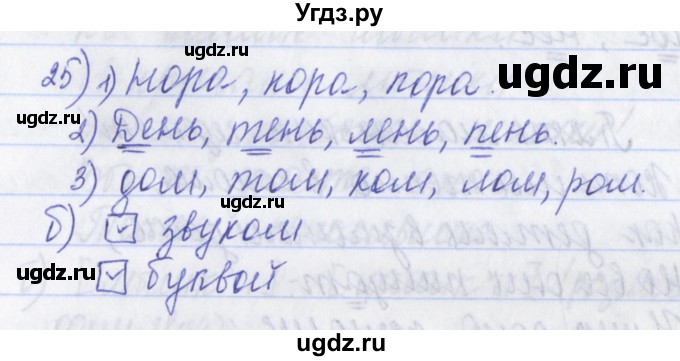 Угдз.ру
ugdz.ru ugdz.ru
25) 1) Нора, кора, пора.
ugdz.ru
2) День, тень, лень, пень.
3) дом, том, ком, лом, ром.
ugdz.ru
б) ☑ звуком
ugdz.ru
☑ буквой.
ugdz.ru
ugdz.ru